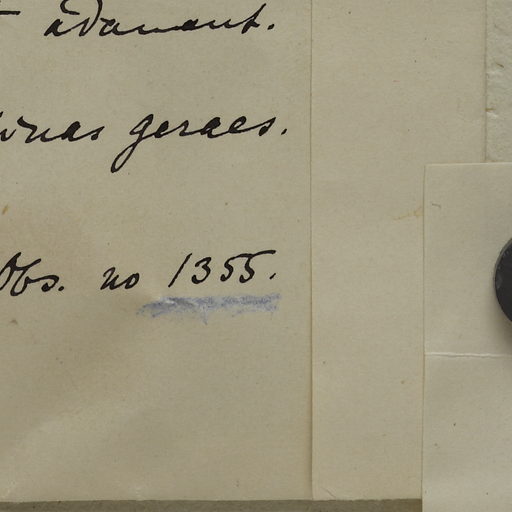 adamant.
inas geraes.
Obs. no 1355.